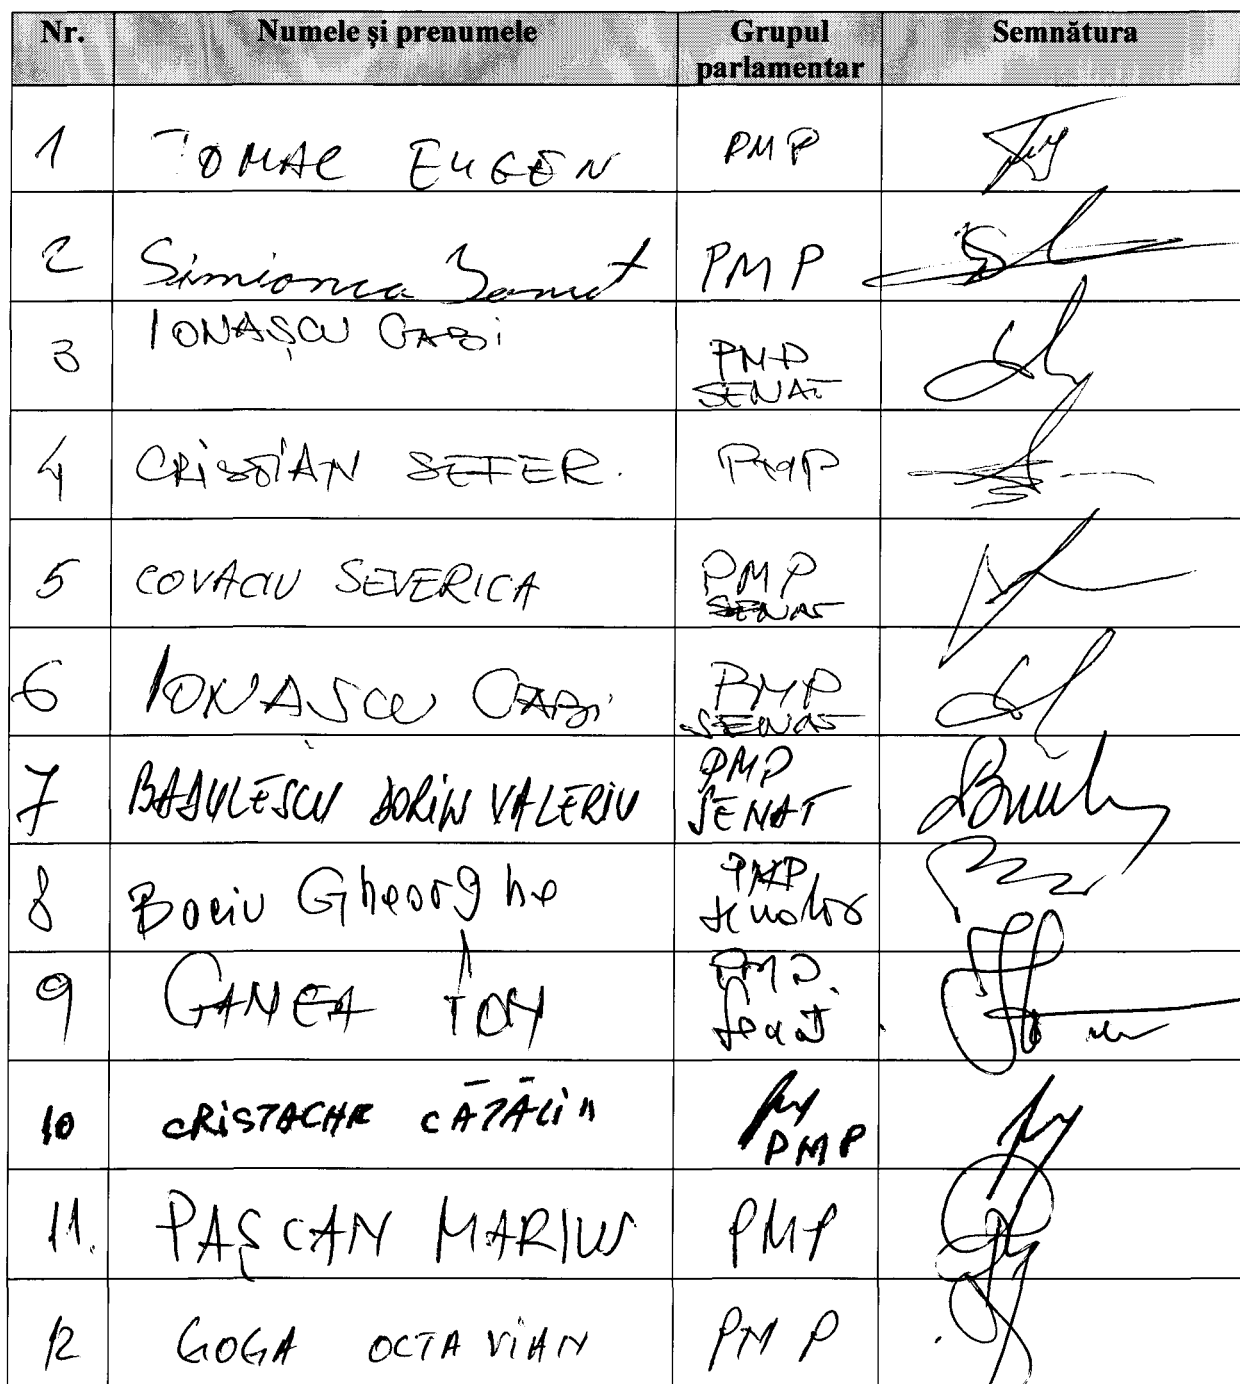 Nr. Numele și prenumele Grupul parlamentar Semnătura
1 TOMAC EUGEN PMP
2 Simionca Ionut PMP
3 IONAȘCU GABI PMP SENAT
4 CRISTIAN SEFER. PMP
5 COVACIU SEVERICA PMP SENAT
6 IONASCU GABI PMP SENAT
7 BADULESCU DORIN VALERIU PMP SENAT
8 Bociu Gheorghe PMP senator
9 GANEA ION PMP. Senat
10 CRISTACHE CĂTĂLIN PMP
11. PAȘCAN MARIUS PMP
12 GOGA OCTAVIAN PMP